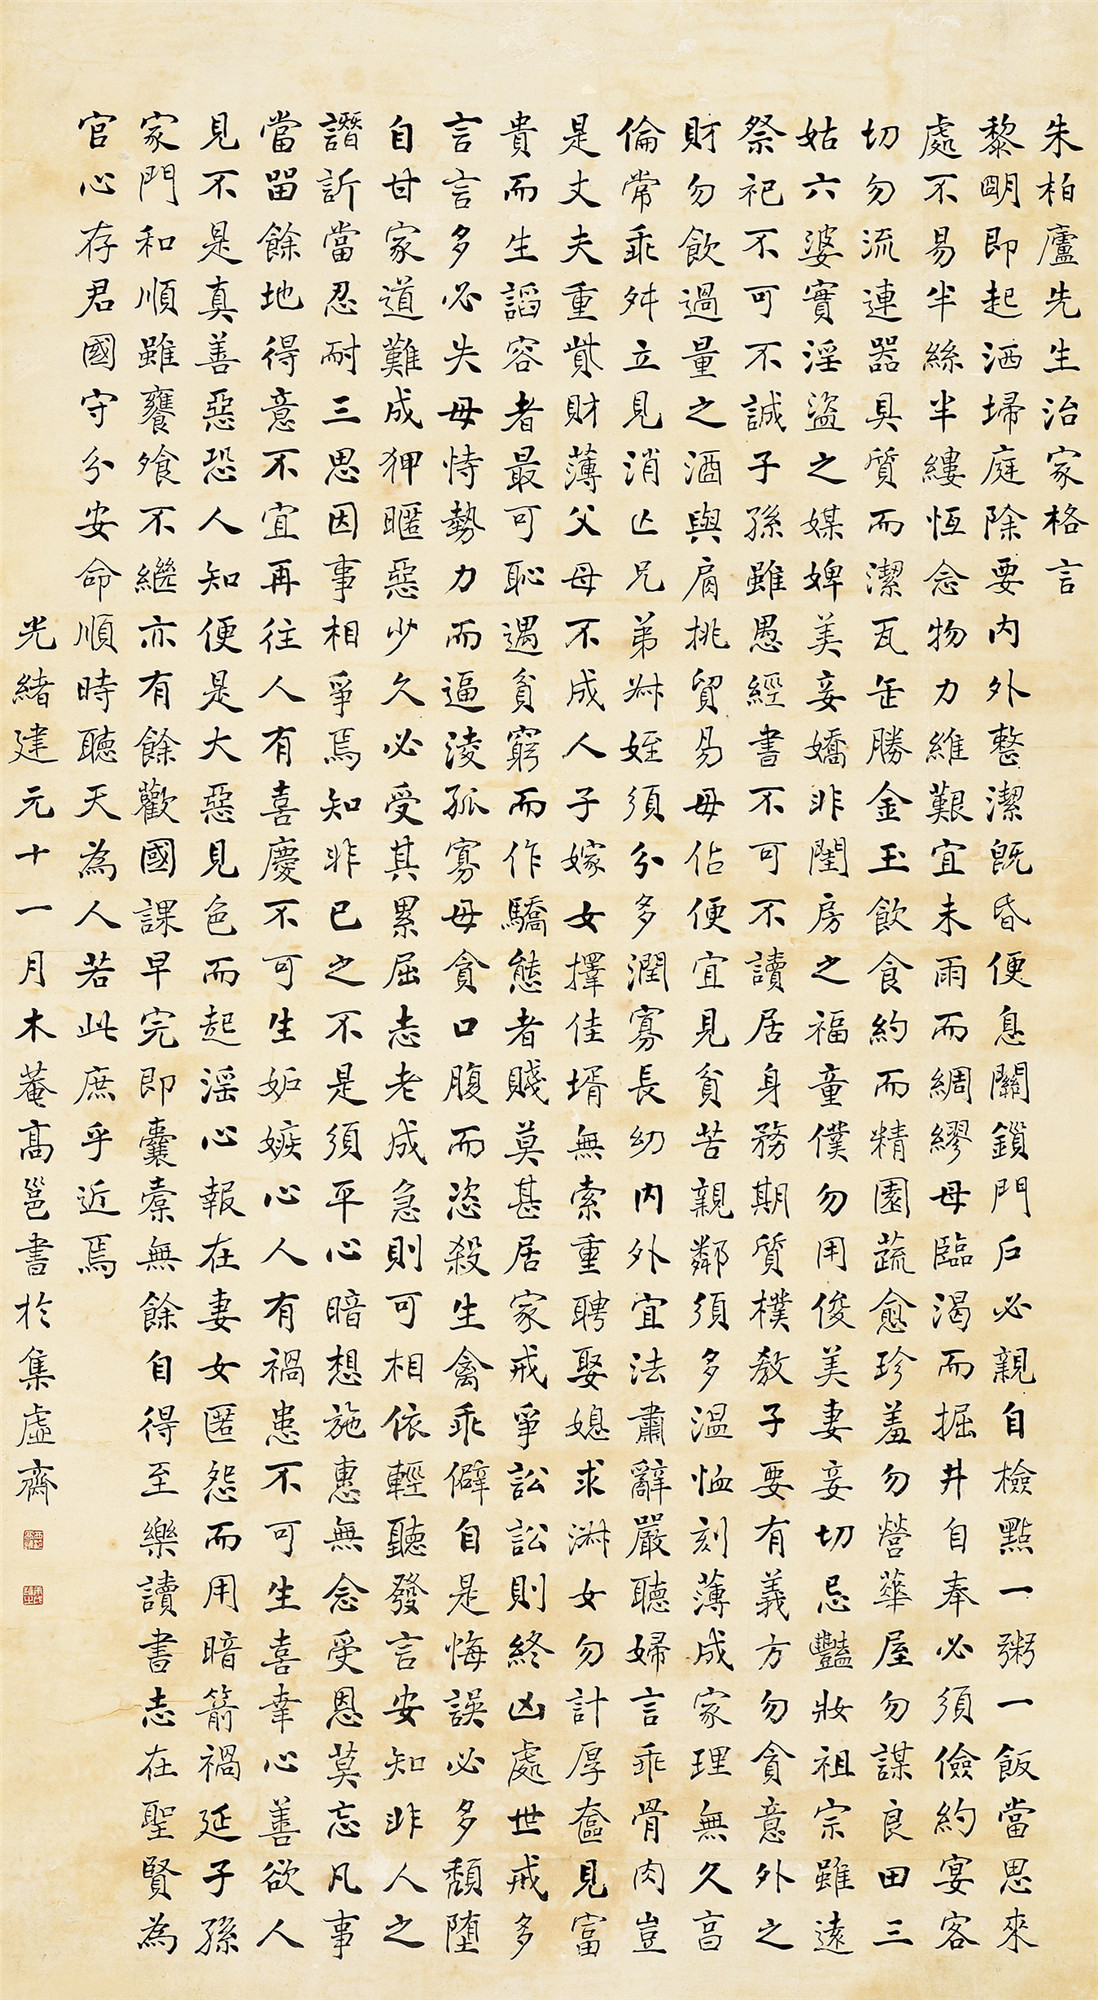 朱柏廬先生治家格言
黎明即起洒埽庭除要內外整潔既昏便息關鎖門户必親自檢點一粥一飯當思來
處不易半絲半縷恆念物力維艱宜未雨而綢繆毋臨渴而掘井自奉必須儉約宴客
切勿流連器具質而潔瓦缶勝金玉飲食約而精園蔬愈珍羞勿營華屋勿謀良田三
姑六婆實淫盜之媒婢美妾嬌非閨房之福童僕勿用俊美妻妾切忌豔妝祖宗雖遠
祭祀不可不誠子孫雖愚經書不可不讀居身務期質樸教子要有義方勿貪意外之
財勿飲過量之酒與肩挑貿易毋佔便宜見貧苦親鄰須多溫恤刻薄成家理無久享
倫常乖舛立見消亡兄弟叔姪須分多潤寡長幼內外宜法肅辭嚴聽婦言乖骨肉豈
是丈夫重貲財薄父母不成人子嫁女擇佳壻無索重聘娶媳求淑女勿計厚奩見富
貴而生諂容者最可恥遇貧窮而作驕態者賤莫甚居家戒爭訟訟則終凶處世戒多
言言多必失毋恃勢力而逼淩孤寡毋貪口腹而恣殺生禽乖僻自是悔誤必多頹墮
自甘家道難成狎暱惡少久必受其累屈志老成急則可相依輕聽發言安知非人之
譖訴當忍耐三思因事相爭焉知非己之不是須平心暗想施惠無念受恩莫忘凡事
當留餘地得意不宜再往人有喜慶不可生妒嫉心人有禍患不可生喜幸心善欲人
見不是真善惡恐人知便是大惡見色而起淫心報在妻女匿怨而用暗箭禍延子孫
家門和順雖饔飧不繼亦有餘歡國課早完即囊橐無餘自得至樂讀書志在聖賢為
官心存君國守分安命順時聽天為人若此庶乎近焉
光緒建元十一月木菴高邕書於集虛齋